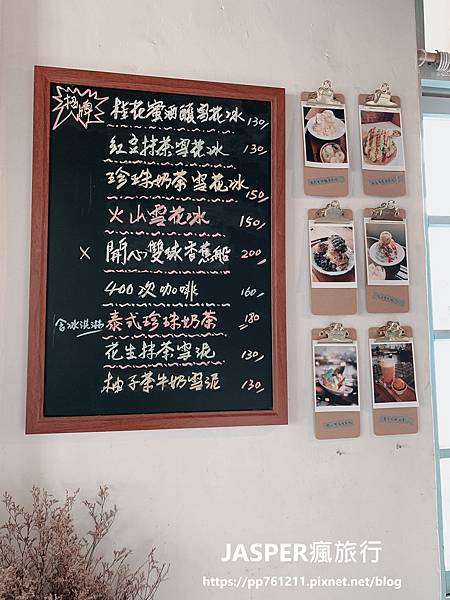 招牌 桂花蜜酒釀雪花冰 130/
紅豆抹茶雪花冰 130/
珍珠奶茶雪花冰 150/
火山雪花冰 150/
× 開心雙球香蕉船 200/
400次咖啡 160/
含冰淇淋 泰式珍珠奶茶 180
花生抹茶雪泥 130/
柚子茶牛奶雪泥 130/
JASPER瘋旅行
https://pp761211.pixnet.net/blog